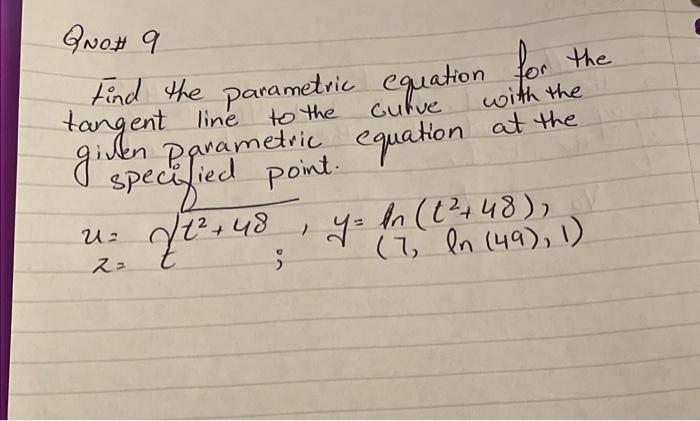 QNO# 9
find the parametric equation for the
tangent line to the curve with the
given parametric equation at the
specified point.
x = √t²+48 , y = ln (t²+48),
z = t ; (7, ln (49), 1)